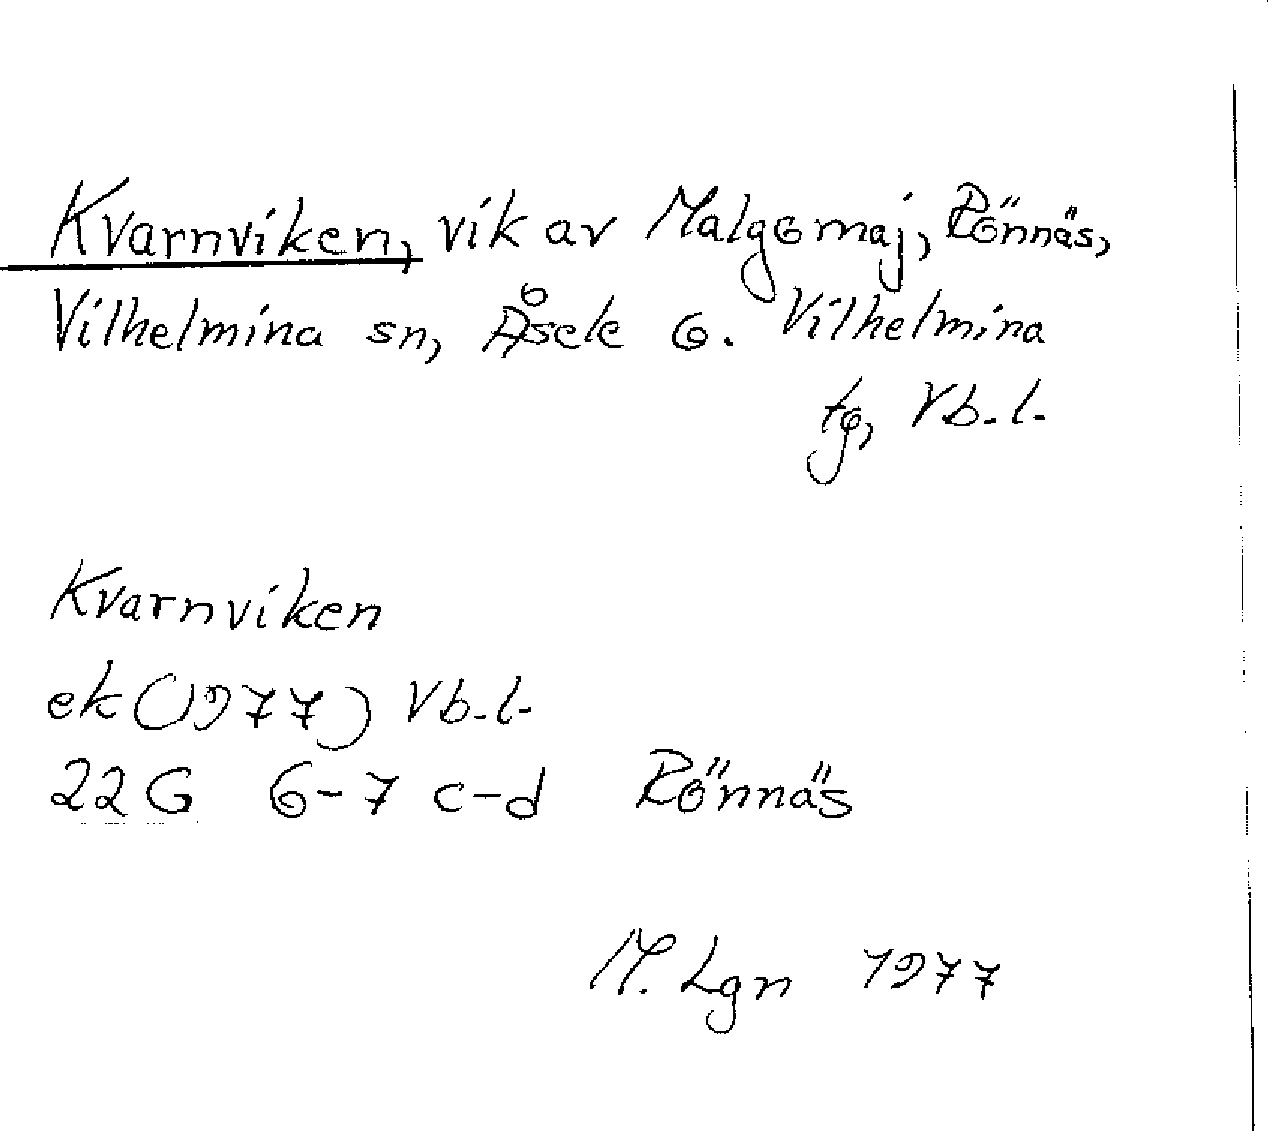 Kvarnviken, vik av Malgomaj, Rönnäs,
Vilhelmina sn, Åsele 6. Vilhelmina
tg, Vb.l.
Kvarnviken
ek (1977) Vb.l.
22G 6-7 c-d Rönnäs
M. Lgn 1977